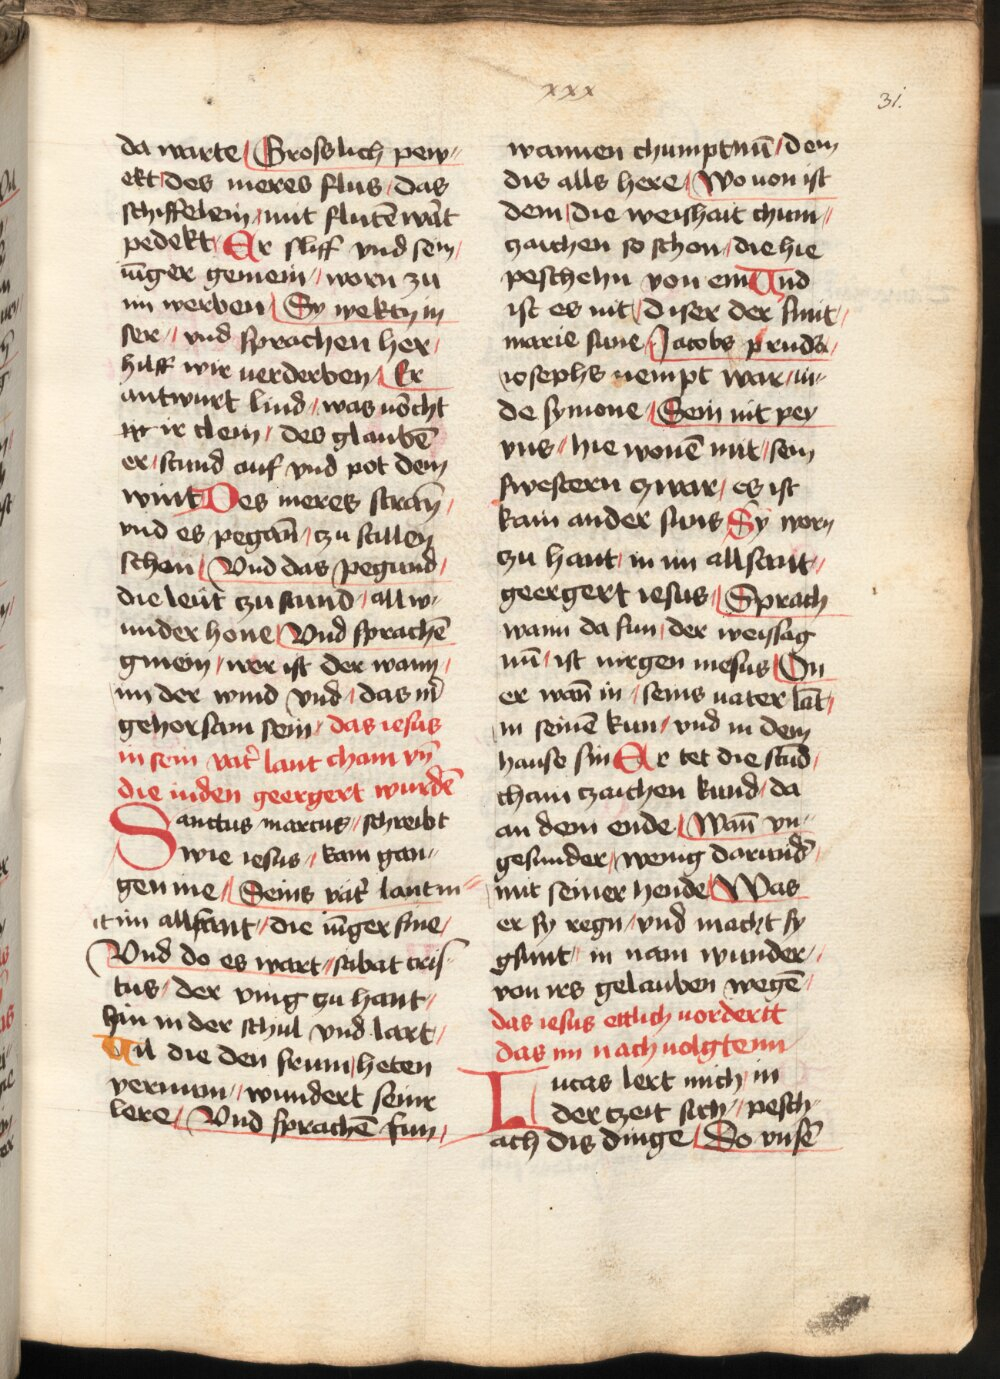 xxx
31.
da warte / Grosslich pew//
ekt des meres flus / das
schiffelein / mit flutē wāt
pedekt / Er slieff vnd sein /
iūger gemein / worn zu
im werben / Sy wektn in
ser / vnd sprachen her /
hilff wir verderben / Er
antwurt lind / was vōcht
ir clein / des glaubē
er / stund auf vnd pot dem
wint Des meres strām /
vnd es pegān / zu stillen
schon / Vnd das pegund /
die leūt zu stund / all w//
under hone / Vnd sprachē
gmein / wer ist der wann /
im der wind vnd / das m̄
gehorsam sein / das iesus
in sein vat̄ lant cham vn̄
die iuden geergert wurdē
Sanctus marcus / schreibt
wie iesus / kam gan//
gen ine / Seins vat̄ lant m//
it im allsant / die iūger sine /
Vnd do es wart / sabat cris
tus / der ving zu hant /
hin in der schul vnd lart /
Vil die den frum heten
vernum / wundert seinr
lere / Vnd sprachē fun /
wannen chumpt nū / dem
dis alls here / Wo von ist
dem / die weishait chum//
zaichen so schon / die hie
peschehn von em Und
ist es nit / diser der smit /
marie sune / Jacobs pruder
iosephs nempt war / iu//
de symone / Sein nit pey
vns / hie wonē mit / sein
swestern zwar / es ist
kain ander suns Sy worn
zu hant / in im allsant /
geergert iesus / Sprach
wann da fun / der weissag
nū / ist nirgen inesus / On
er wan̄ in / seins vater lāt /
in seinē kun / vnd in dem
hause sin Er tet die stūd /
cham zaichen kund / da
an dem ende / Wan̄ vn//
gesunder / wenig darundē /
mit seiner hende / Was
er sy regn / vnd macht sy
gsunt / in nam wunder /
von irs gelauben wegē /
das iesus ettlich vordertt
das im nachuolgten
Lucas lert mich / in
der tzeit sich / pesch
ach dis dinge / Do vnsē